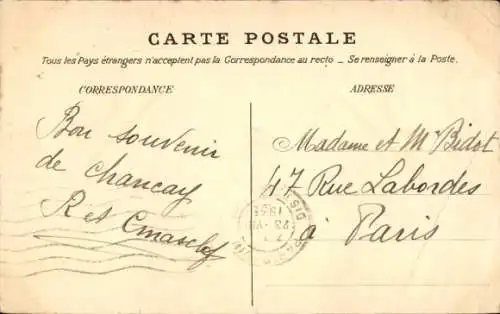 CARTE POSTALE
Tous les Pays étrangers n'acceptent pas la Correspondance au recto _ Se renseigner à la Poste.
CORRESPONDANCE
Bon souvenir
de Chancay
R et
ADRESSE
Madame et M Bidot
47 Rue Labordes
à Paris